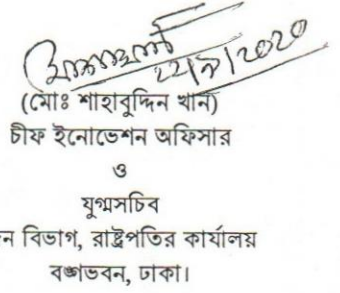 ২২/৯/২০২০
(মোঃ শাহাবুদ্দিন খান)
চীফ ইনোভেশন অফিসার
ও
যুগ্মসচিব
ন বিভাগ, রাষ্ট্রপতির কার্যালয়
বঙ্গভবন, ঢাকা।